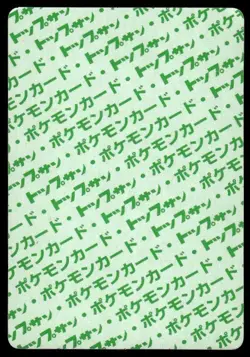 トップサン・
ポケモンカード・トップサン
トップサン・ポケモンカード・
ポケモンカード・トップサン・
トップサン・ポケモンカード
ポケモンカード・トップサン・
トップサン・ポケモンカード
・ポケモンカード・トップサン・
トップサン・ポケモンカード
・ポケモンカード・トップサン
トップサン・ポケモンカード
・ポケモンカード・トップサン
トップサン・ポケモンカード・
ポケモンカード・トップサン
トップサン・ポケモンカード
ポケモンカード・